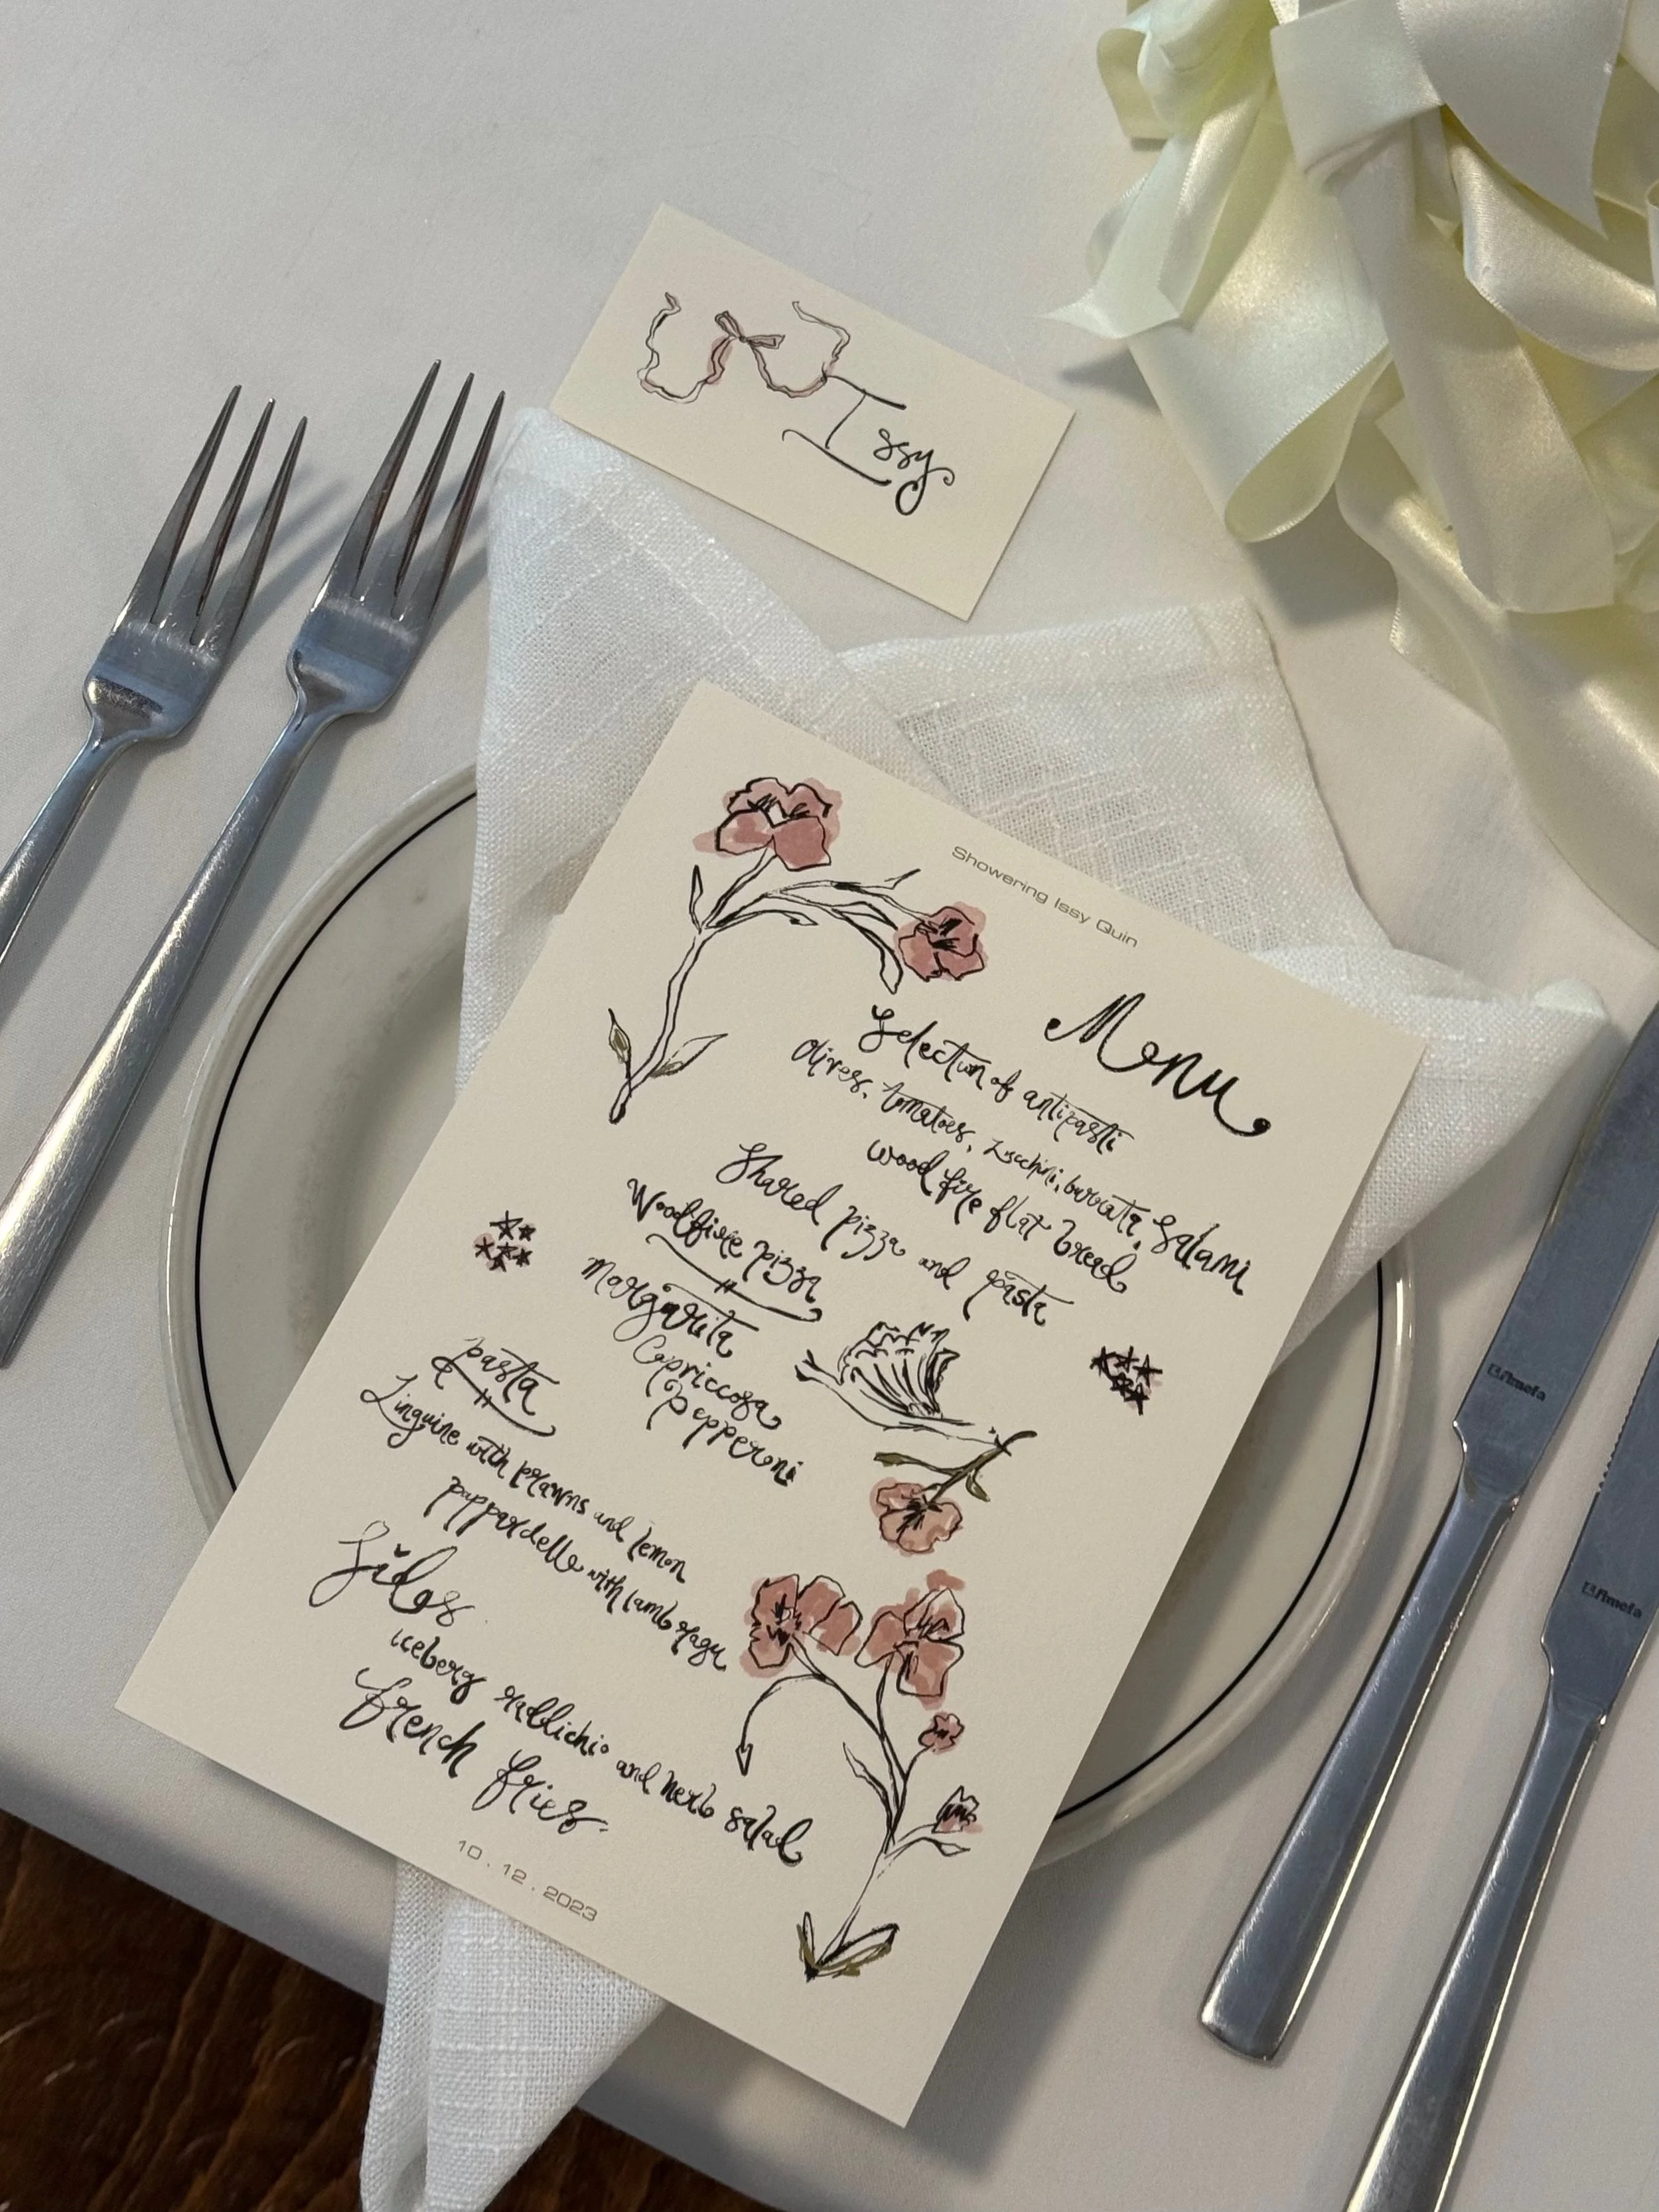 Issy
Showering Issy Quin
Menu
Selection of antipasti
olives, tomatoes, zucchini, burrata, salami
wood fire flat bread
Shared pizza and pasta
Woodfire pizza
Margarita
Capriccosa
Pepperoni
pasta
Linguine with prawns and lemon
pappardelle with lamb ragu
Sides
iceberg raddichio and herb salad
french fries.
10 . 12 . 2023